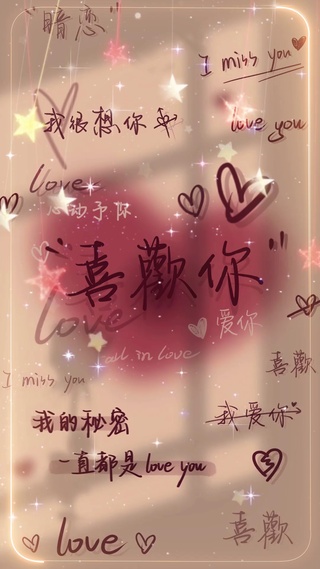 "暗恋"
I miss you
我很想你
love you
love
心动予你
"喜歡你"
love
爱你
fall in love
喜歡
I miss you
我的秘密
我爱你
一直都是 love you
love
喜歡